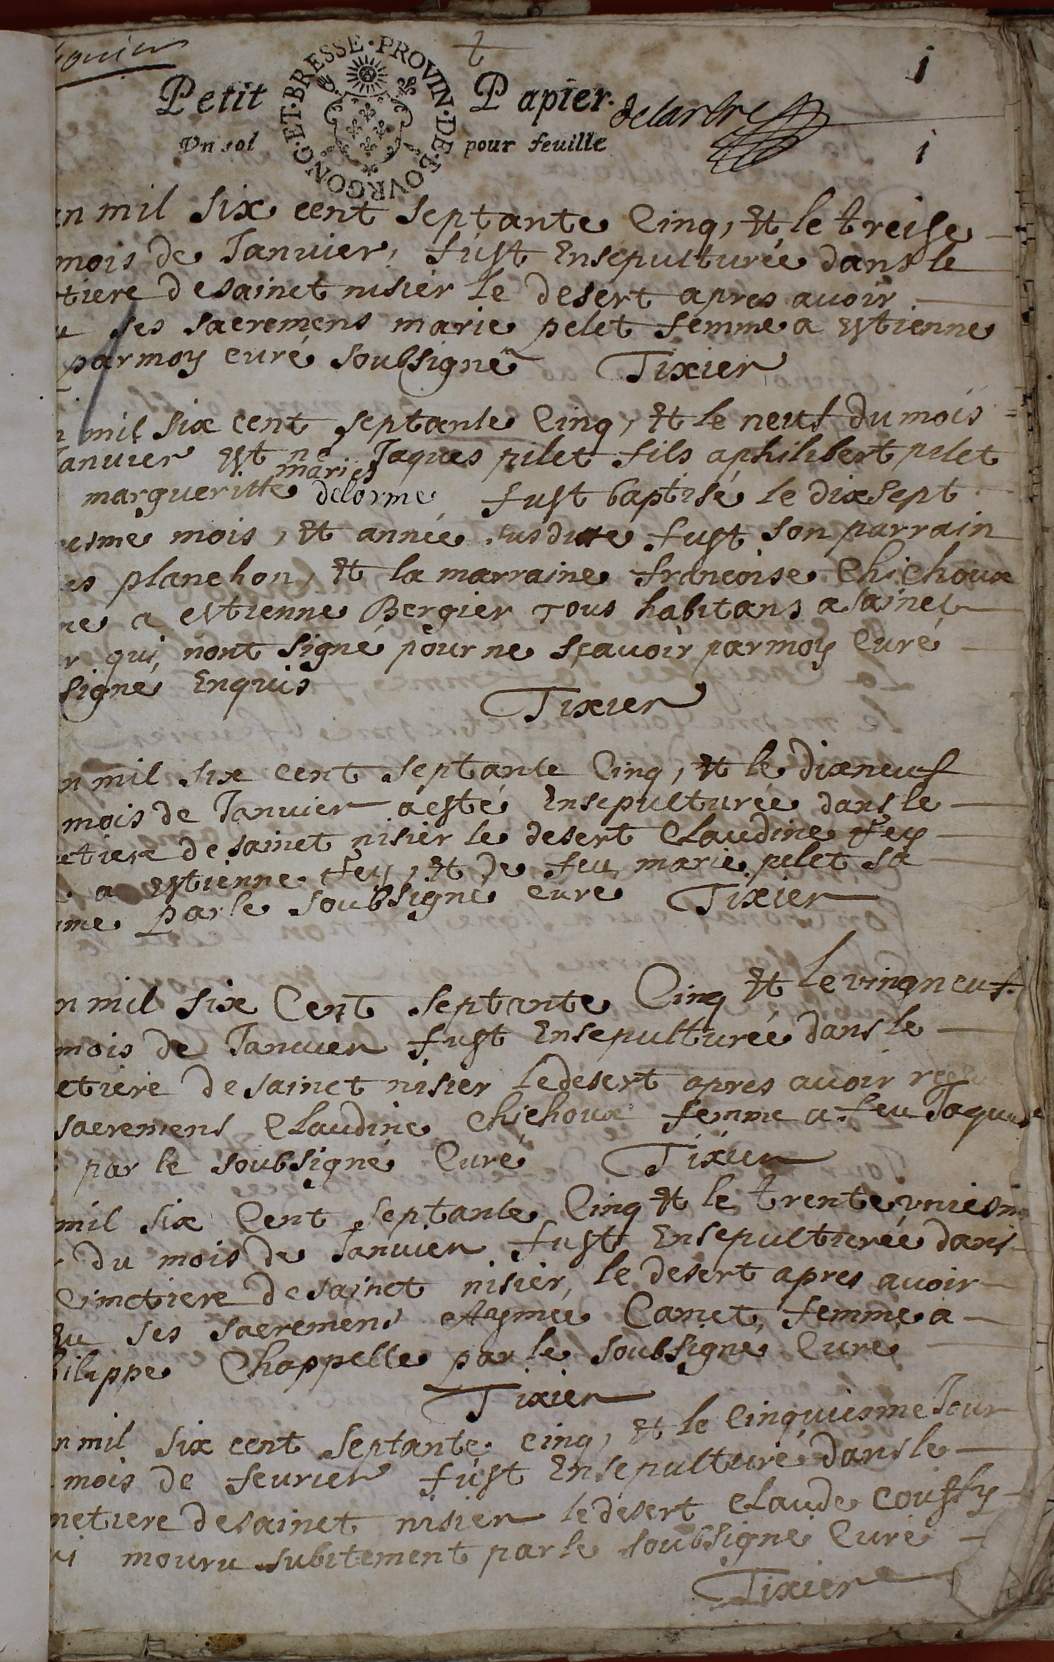 Petit Papier. delartre
Un sol pour feuille
ET·BRESSE·PROVIN·DE·BOVRGONG
1
1
n mil six cent septante Cinq, Et le treise
mois de Janvier, fust Ensepulturée dans le
tiere de sainct nisier le desert apres avoir
u ses sacremens marie pelet femme a Estienne
par moy curé soubsigné Tixier
mil six cent septante Cinq, Et le neuf du mois
anvier Est né Jaques pilet fils a philibert pilet
mariés
margueritte delorme fust baptisé le dixsept
esme mois, Et année susditte fust son parrain
es planchon, Et la marraine francoise Chichoux
e a estienne Bergier Tous habitans a sainct
r qui n'ont signé pour ne sçavoir par moy Curé
signé Enquis
Tixier
n mil six cent septante Cinq, Et le dixneuf
mois de Janvier a esté Ensepulturée dans le
etiere de sainct nisier le desert Claudine fey
a Estienne fey, Et de feu marie pelet sa
me par le soubsigné curé Tixier
n mil six Cent septante Cinq Et le vingneuf
mois de Janvier fust Ensepulturée dans le
etiere de sainct nisier le desert apres avoir
sacremens Claudine Chichoux femme a feu Jaques
par le soubsigné Curé Tixier
mil six Cent septante Cinq Et le trente uniesm
du mois de Janvier fust Ensepulturée dans
Cimetiere de sainct nisier le desert apres avoir
u ses sacremens Aymée Canet, femme a
hilippe Chappelle par le soubsigné Curé
Tixier
n mil six cent septante cinq, et le Cinquiesme Jour
mois de fevrier fust Ensepulturé dans le
metiere de sainct nisier le desert Claude
i mouru subitement par le soubsigné Curé
Tixier